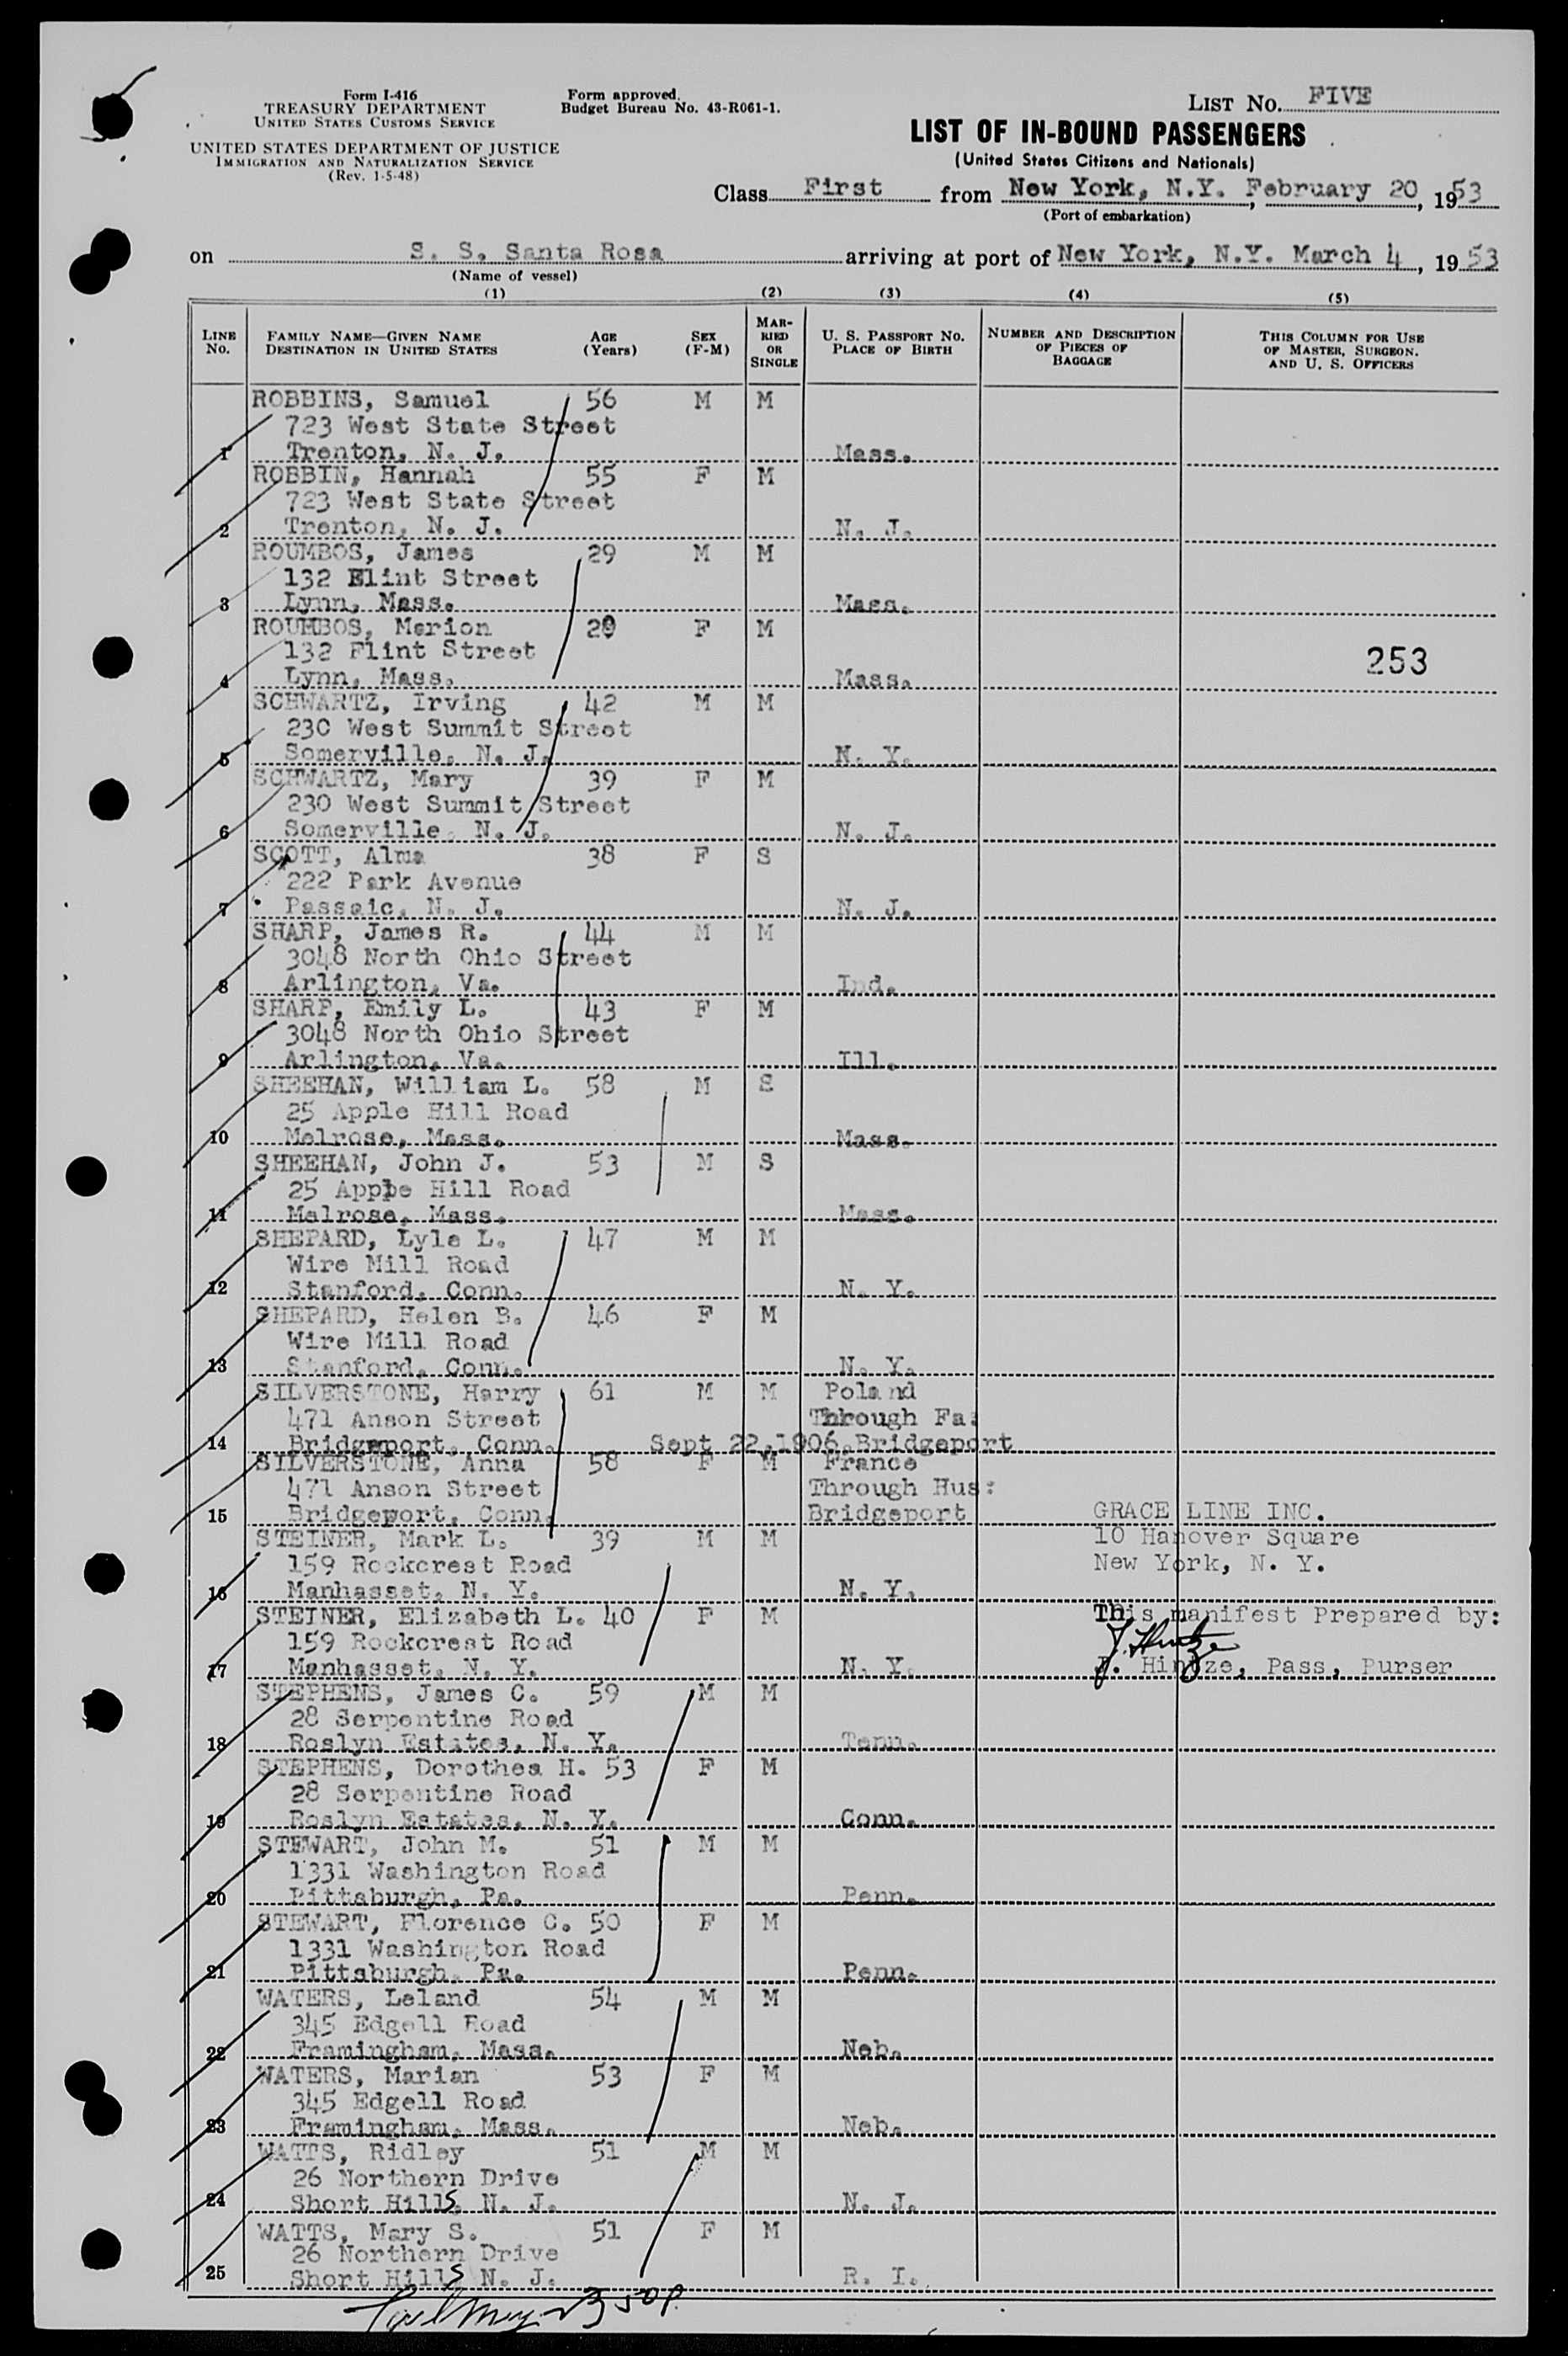 Form I-416
TREASURY DEPARTMENT
UNITED STATES CUSTOMS SERVICE
UNITED STATES DEPARTMENT OF JUSTICE
IMMIGRATION AND NATURALIZATION SERVICE
(Rev. 1-5-48)
Form approved.
Budget Bureau No. 43-R061-1.
LIST No. FIVE
LIST OF IN-BOUND PASSENGERS
(United States Citizens and Nationals)
Class First from New York, N.Y. February 20, 1953
(Port of embarkation)
on S. S. Santa Rosa arriving at port of New York, N.Y. March 4, 1953
(Name of vessel)
(1) (2) (3) (4) (5)
LINE No. FAMILY NAME—GIVEN NAME DESTINATION IN UNITED STATES AGE (Years) SEX (F-M) MARRIED OR SINGLE U. S. PASSPORT No. PLACE OF BIRTH NUMBER AND DESCRIPTION OF PIECES OF BAGGAGE THIS COLUMN FOR USE OF MASTER, SURGEON, AND U. S. OFFICERS
ROBBINS, Samuel 56 M M
723 West State Street
1 Trenton, N. J. Mass.
ROBBIN, Hannah 55 F M
723 West State Street
2 Trenton, N. J. N. J.
ROUMBOS, James 29 M M
132 Flint Street
3 Lynn, Mass. Mass.
ROUMBOS, Marion F M
132 Flint Street
253
4 Lynn, Mass. Mass.
SCHWARTZ, Irving 42 M M
230 West Summit Street
5 Somerville, N. J. N. Y.
SCHWARTZ, Mary 39 F M
230 West Summit Street
6 Somerville, N. J. N. J.
SCOTT, Alma 38 F S
222 Park Avenue
7 Passaic, N. J. N. J.
SHARP, James R. 44 M M
3048 North Ohio Street
8 Arlington, Va. Ind.
SHARP, Emily L. 43 F M
3048 North Ohio Street
9 Arlington, Va. Ill.
SHEEHAN, William L. 58 M S
25 Apple Hill Road
10 Melrose, Mass. Mass.
SHEEHAN, John J. 53 M S
25 Apple Hill Road
11 Melrose, Mass. Mass.
SHEPARD, Lyle L. 47 M M
Wire Mill Road
12 Stanford, Conn. N. Y.
SHEPARD, Helen B. 46 F M
Wire Mill Road
13 Stanford, Conn. N. Y.
SILVERSTONE, Harry 61 M M Poland
471 Anson Street Through Fa:
14 Bridgeport, Conn. Sept 22,1906,Bridgeport
SILVERSTONE, Anna 58 F M France
471 Anson Street Through Hus:
15 Bridgeport, Conn. Bridgeport GRACE LINE INC.
STEINER, Mark L. 39 M M 10 Hanover Square
159 Rockcrest Road New York, N. Y.
16 Manhasset, N. Y. N. Y.
STEINER, Elizabeth L. 40 F M This manifest Prepared by:
159 Rockcrest Road J. Hintze
17 Manhasset, N. Y. N. Y. J. Hintze, Pass, Purser
STEPHENS, James C. 59 M M
28 Serpentine Road
18 Roslyn Estates, N. Y. Tenn.
STEPHENS, Dorothea H. 53 F M
28 Serpentine Road
19 Roslyn Estates, N. Y. Conn.
STEWART, John M. 51 M M
1331 Washington Road
20 Pittsburgh, Pa. Penn.
STEWART, Florence C. 50 F M
1331 Washington Road
21 Pittsburgh, Pa. Penn.
WATERS, Leland 54 M M
345 Edgell Road
22 Framingham, Mass. Neb.
WATERS, Marian 53 F M
345 Edgell Road
23 Framingham, Mass. Neb.
WATTS, Ridley 51 M M
26 Northern Drive
24 Short Hills, N. J. N. J.
WATTS, Mary S. 51 F M
26 Northern Drive
25 Short Hills N. J. R. I.